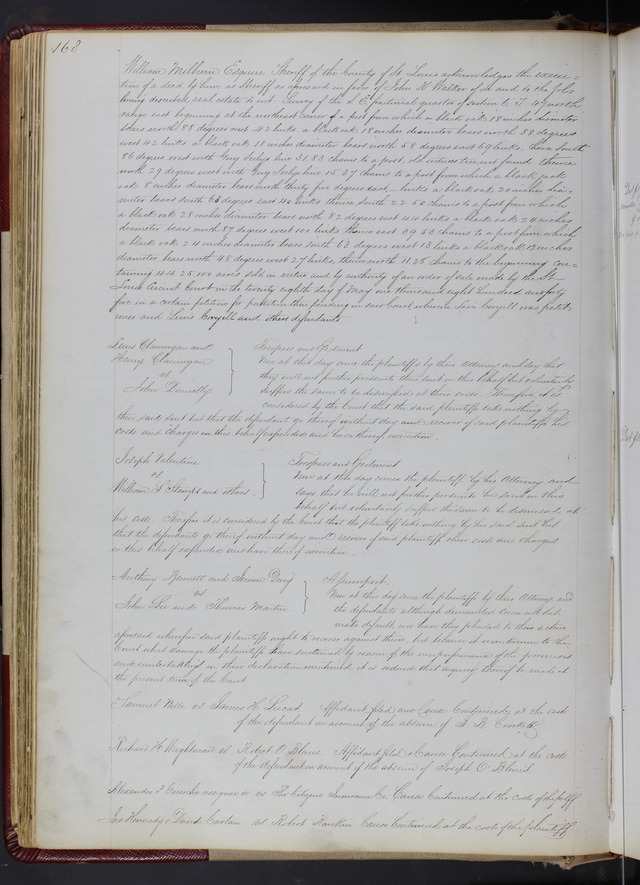 168
William Milburn Esquire Sheriff of the County of St Louis acknowledges the execu-
tion of a deed by him as Sheriff as aforesaid in favor of John H Walker of and to the follo
wing described real estate to wit. Survey of the S E fractional quarter of section 6 T 47 north
range east beginning at the northeast corner of a post from which a black oak 18 inches diameter
bears north 88 degrees west 42 links a black oak 18 inches diameter bears north 88 degrees
west 42 links a black oak 18 inches diameter bears north 58 degrees east 69 links. thence south
86 degrees west with Guy Seelys line 31.83 chains to a post, old witness tree not found thence
north 29 degrees west with Guy Seelys line 15.37 chains to a post from which a black jack
oak 8 inches diameter bears north thirty five degrees east links a black oak 20 inches dia-
meter bears south 63 degrees east 44 links thence south 22 50 chains to a post from which
a black oak 28 inches diameter bears north 82 degrees east 44 links a black oak 24 inches
diameter bears north 87 degrees west 100 links thence east 39 53 chains to a post from which
a black oak 24 inches diameter bears south 63 degrees west 13 links a black oak 12 inches
diameter bears north 48 degrees west 27 links, thence north 11.25 chains to the beginning con-
taining 44 25/100 acres sold in virtue and by authority of an order of sale made by the St
Louis Circuit Court on the twenty eighth day of May one thousand eight hundred and forty
five in a certain petition for partition then pending in said Court wherein Levi Coryell was petit-
ioner and Lewis Coryell and others defendants.
Lewis Clamorgan and
Henry Clamorgan
vs
John Donnelly
Trespass and Ejectment
Now at this day come the plaintiffs by their Attorney and say that
they will not further prosecute their suit in this behalf but voluntarily
suffer the same to be dismissed at their costs. Therefore it is
considered by the Court that the said plaintiffs take nothing by
their said suit but that the defendant go thereof without day and recover of said plaintiffs his
costs and charges in this behalf expended and have thereof execution.
Joseph Valentine
vs
William S Stamps and others.
Trespass and Ejectment
Now at this day comes the plaintiff by his Attorney and
says that he will not further prosecute his suit in this
behalf but voluntarily suffers the same to be dismissed at
his costs. Therefore it is considered by the Court that the plaintiff take nothing by his said suit but
that the defendants go thereof without day and recover of said plaintiff their costs and charges
in this behalf expended and have thereof execution.
Anthony Bennett and Davy
vs
John Lee and Thomas Martin.
Assumpsit.
Now at this day come the plaintiffs by their Attorney, and
the defendants although demanded come not but
make default nor have they pleaded to this action
aforesaid wherefore said plaintiffs ought to recover against them, but because it is unknown to the
Court what damages the plaintiffs have sustained by reason of the nonperformance of the promises
and undertakings in their declaration mentioned it is ordered that inquiry thereof be made at
the present term of the Court.
Samuel vs James H. Lucas Affidavit filed and Cause Continued at the costs
of the defendant on account of the absence of
Richard H Weightman vs Robert O Blenis Affidavit filed & Cause Continued at the costs
of the defendant on account of the absence of Joseph O Blenis
Alexander J assignee vs The Citizens Insurance Co. Cause Continued at the costs of the pltff
Jas Kennedy & David Caslan vs Robert Rankin Cause Continued at the costs of the plaintiff